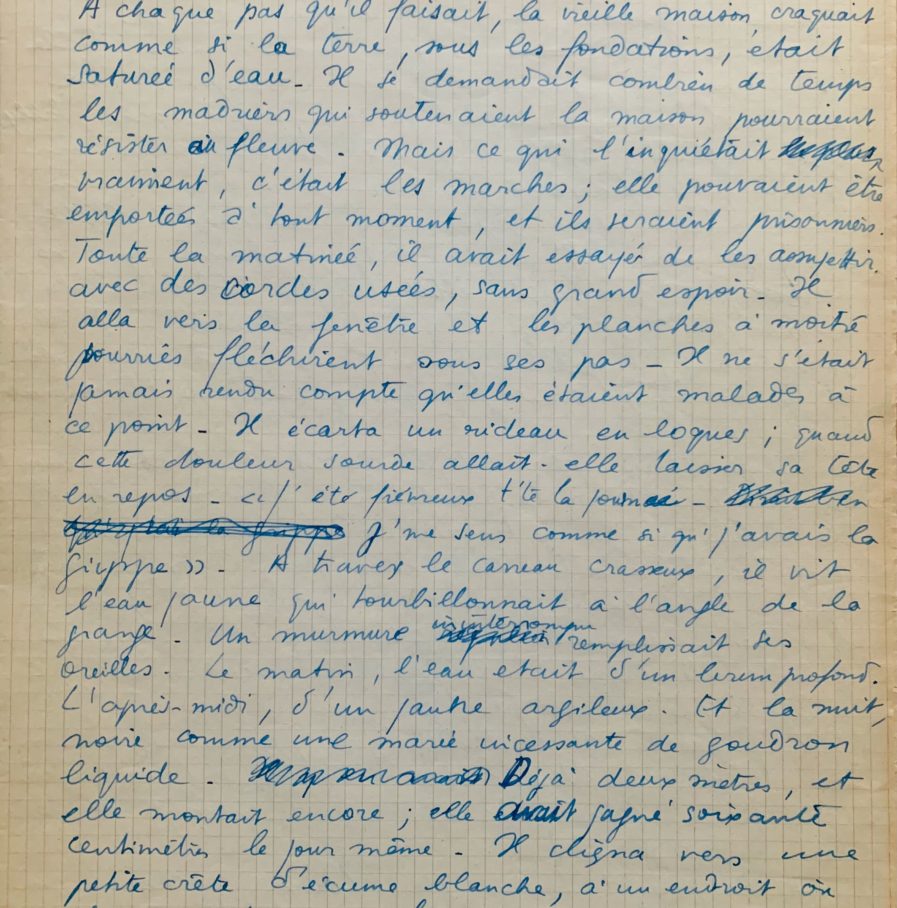 A chaque pas qu'il faisait, la vieille maison craquait
comme si la terre, sous les fondations, était
saturée d'eau - Il se demandait combien de temps
les madriers qui soutenaient la maison pourraient
résister au fleuve. Mais ce qui l'inquiétait
vraiment, c'était les marches ; elle pouvaient être
emportées à tout moment, et ils seraient prisonniers.
Toute la matinée, il avait essayé de les assujettir
avec des cordes usées, sans grand espoir - Il
alla vers la fenêtre et les planches à moitié
pourries fléchirent sous ses pas - Il ne s'était
jamais rendu compte qu'elles étaient malades à
ce point - Il écarta un rideau en loques ; quand
cette douleur sourde allait-elle laisser sa tête
en repos - « J'été fiévreux t'te la journée -
J'me sens comme si qu'j'avais la
grippe » - A travers le carreau crasseux, il vit
l'eau jaune qui tourbillonnait à l'angle de la
grange - Un murmure ininterrompu remplissait ses
oreilles - Le matin, l'eau etait d'un brun profond.
L'après-midi, d'un jaune argileux. Et la nuit,
noire comme une marée incessante de goudron
liquide - Déjà deux mètres, et
elle montait encore ; elle avait gagné soixante
centimètres le jour même - Il cligna vers une
petite crête d'écume blanche, à un endroit où